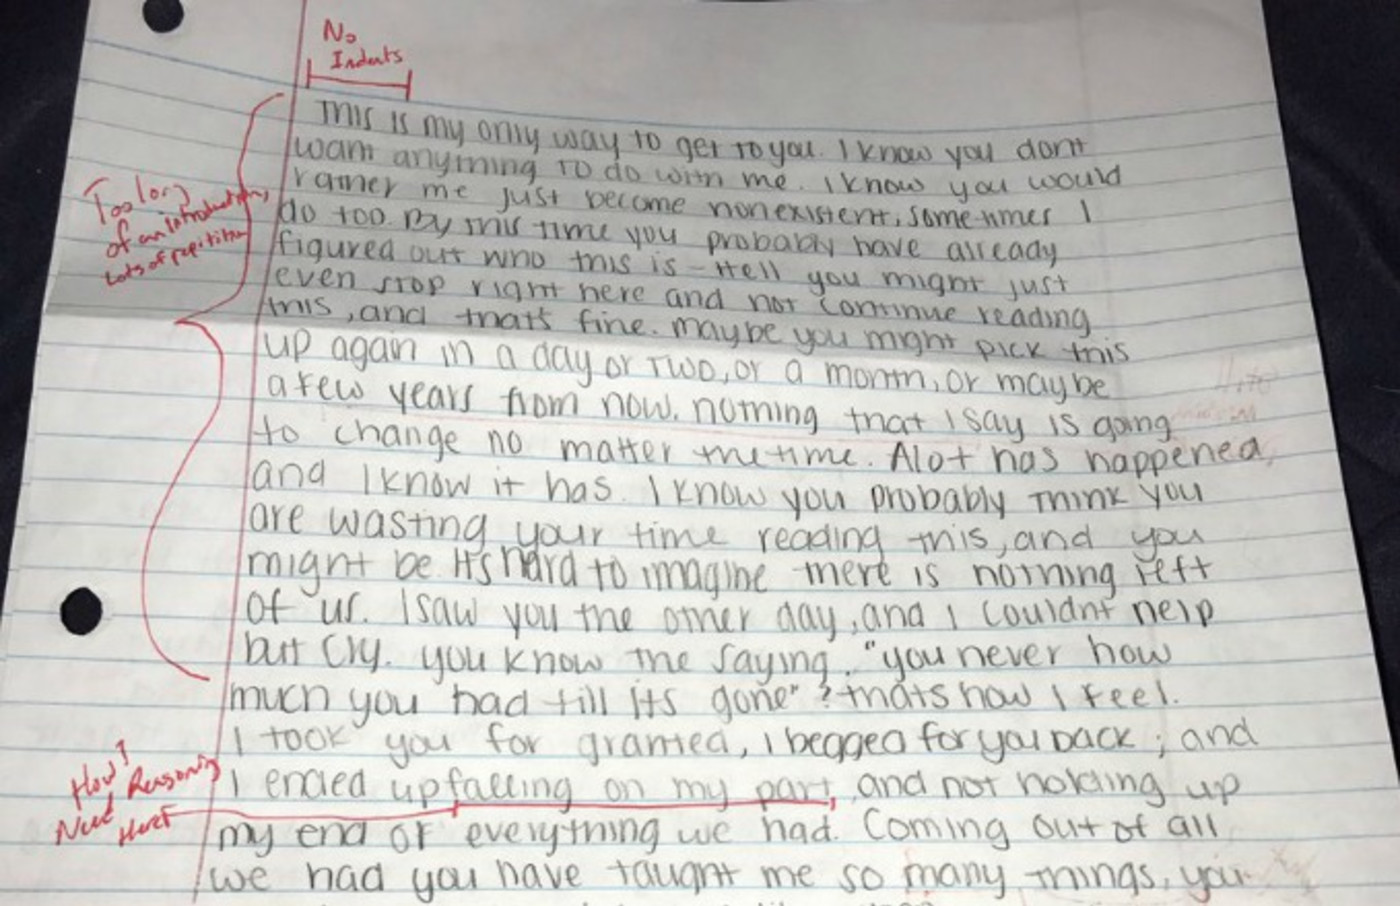 No
Indents
This is my only way to get to you. I know you dont
want anything to do with me. I know you would
rather me just become nonexistent, sometimes I
do too. By this time you probably have already
figured out who this is - Hell you might just
even stop right here and not continue reading
this, and that's fine. maybe you might pick this
up again in a day or two, or a month, or maybe
a few years from now. nothing that I say is going
to change no matter the time. Alot has happened,
and I know it has. I know you probably think you
are wasting your time reading this, and you
might be. It's hard to imagine there is nothing left
of us. I saw you the other day, and I couldnt help
but cry. you know the saying. "you never how
much you had till its gone"? thats how I feel.
I took you for granted, I begged for you back; and
I ended up falling on my part, and not holding up
my end of everything we had. Coming out of all
we had you have taught me so many things, you
Too long
of an introduction,
Lots of repitition
How?
Need Reasoning
Here